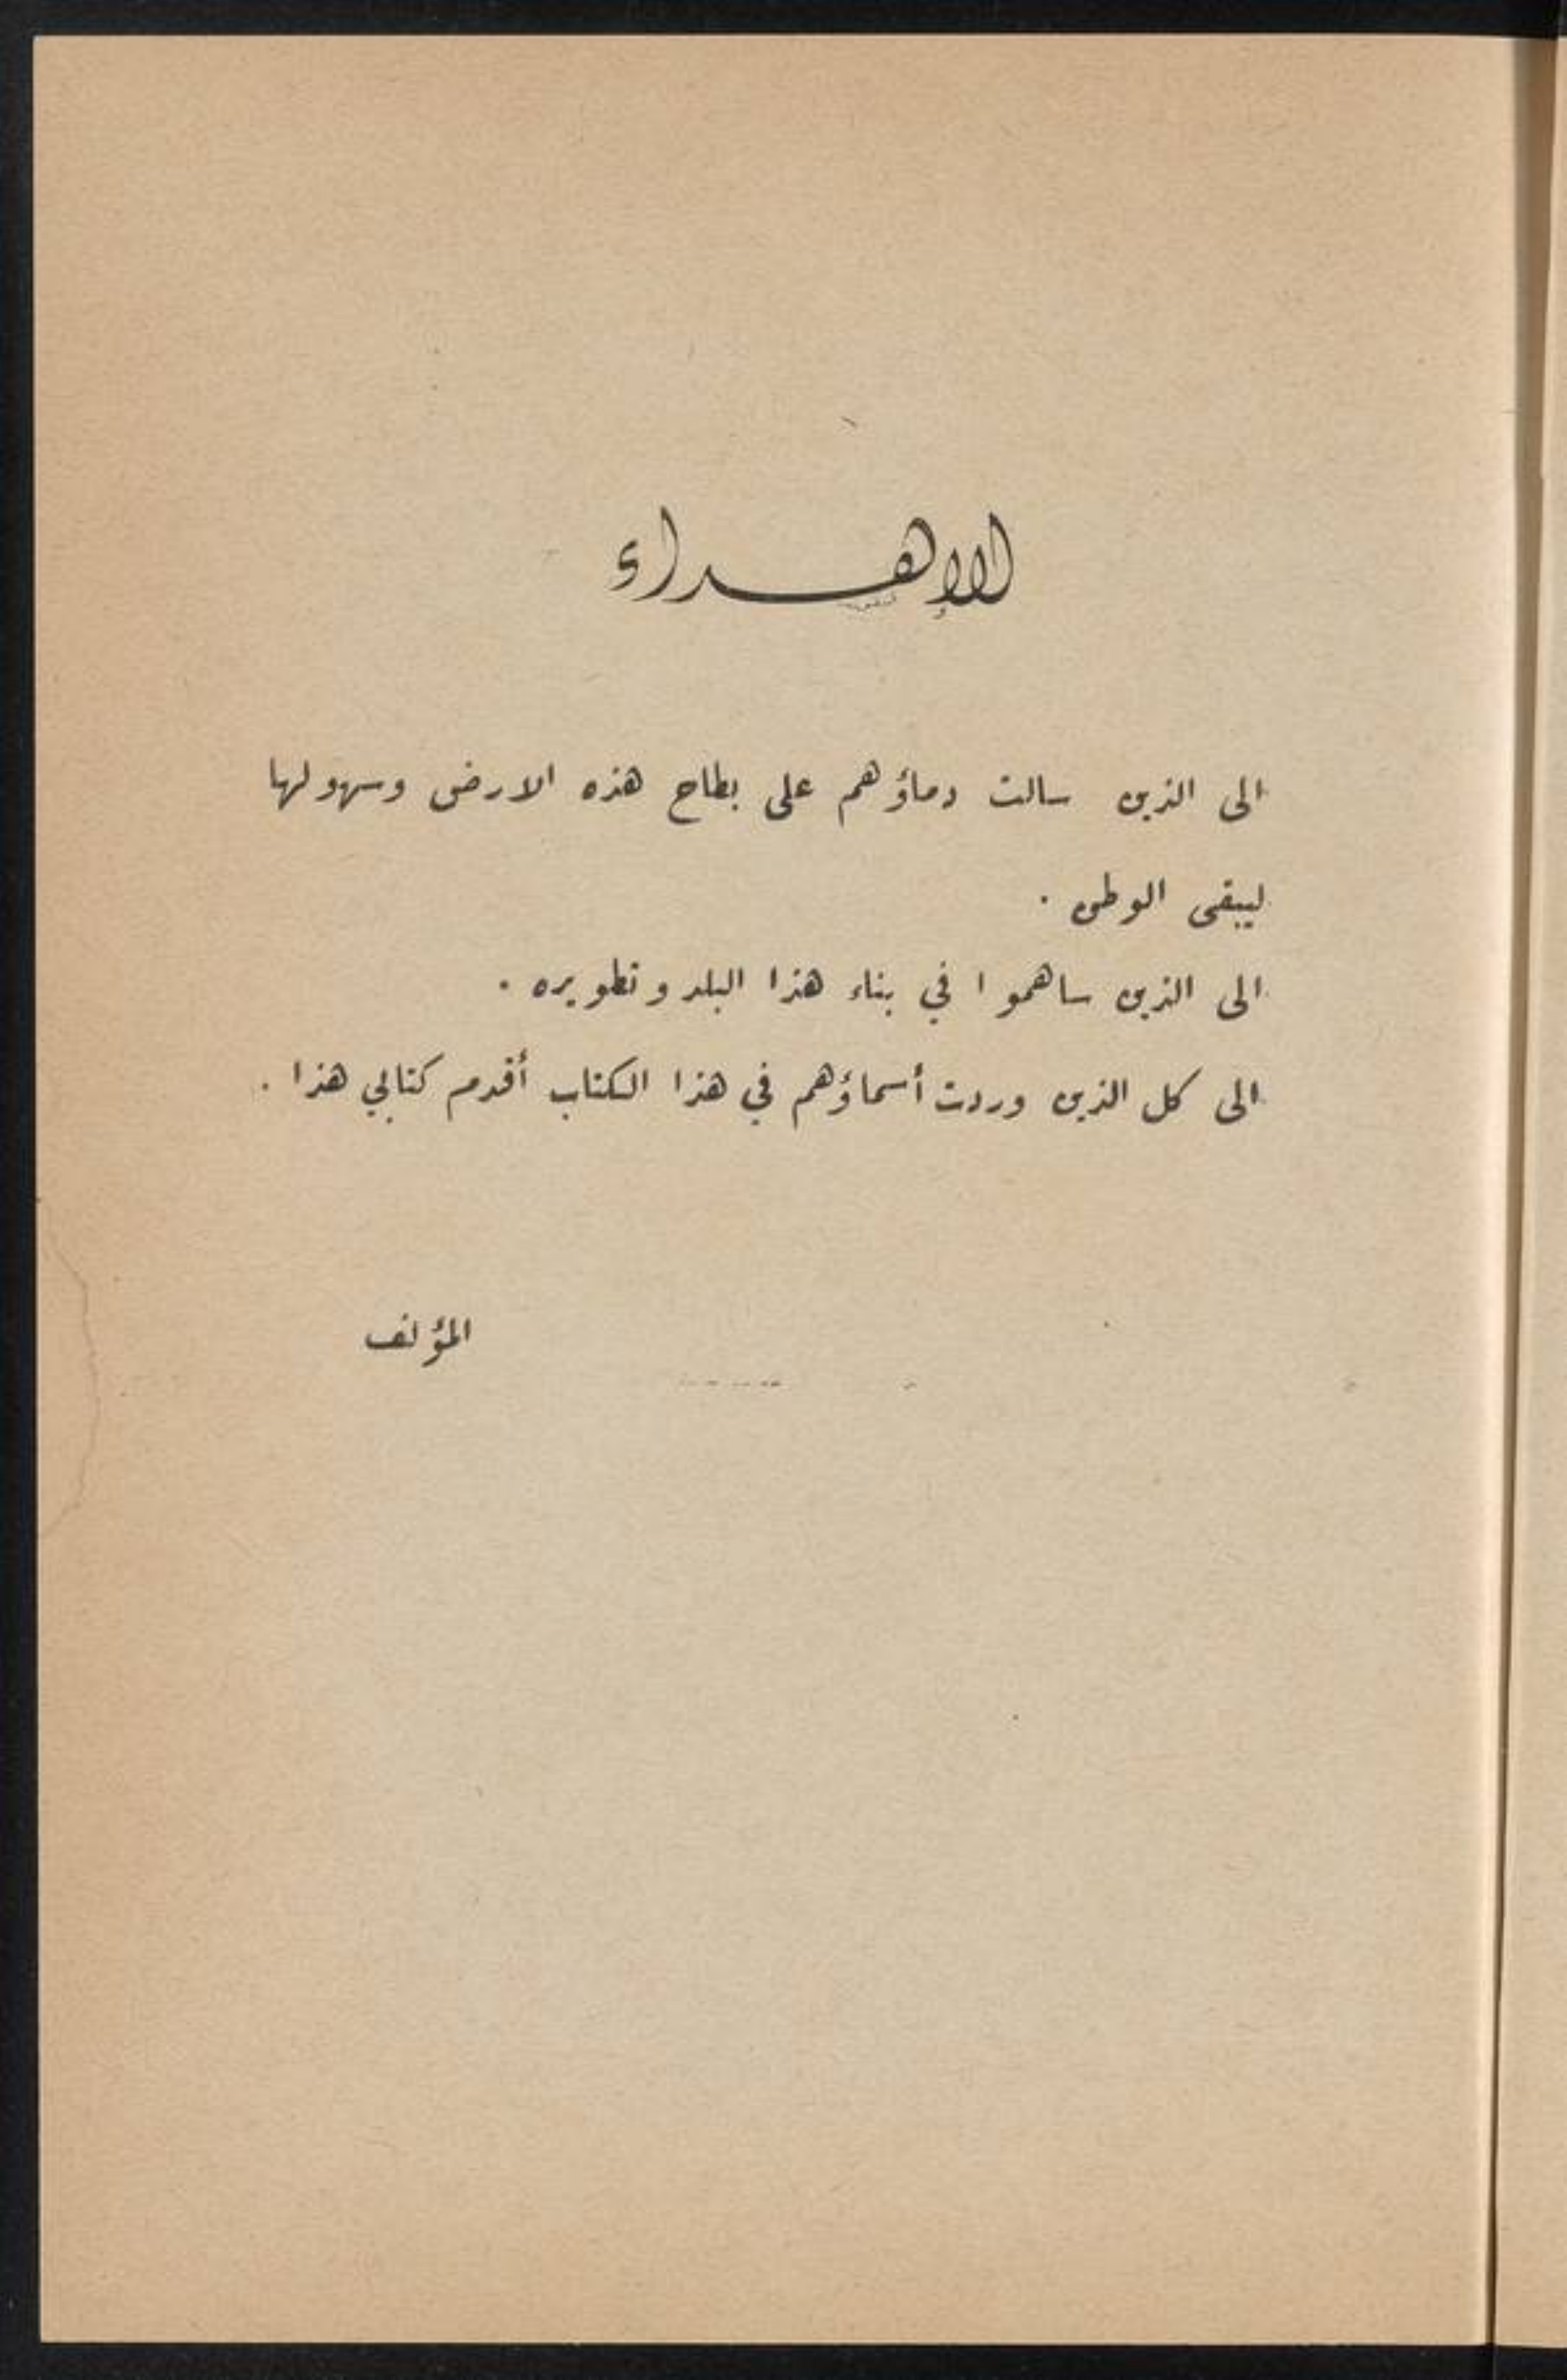 الإهـــداء
الى الذين سالت دماؤهم على بطاح هذه الارض وسهولها
ليبقى الوطن .
الى الذين ساهموا في بناء هذا البلد وتطويره .
الى كل الذين وردت أسماؤهم في هذا الكتاب أقدم كتابي هذا .
المؤلف